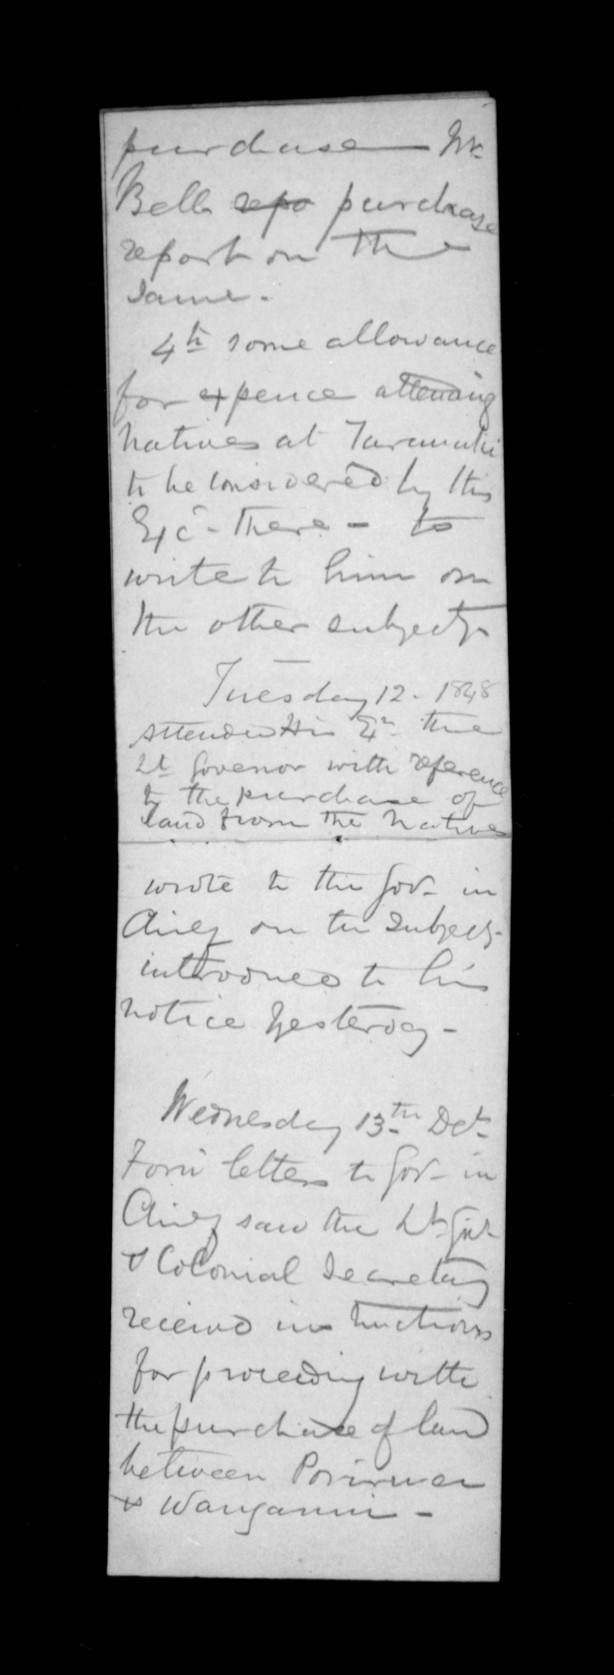 purchase — Mr
Bell repo purchase
report on the
same.
4th some allowance
for expence attending
Natives at Taranaki
to be considered by His
Exc- There - to
write to him on
the other subjects
Tuesday 12. 1848
Attended His Ex the
Lt Govenor with reference
to the purchase of
land from the Natives
wrote to the Gov- in
Chief on the subjects
introduced to his
notice yesterday -
Wednesday 13th Det
letters to Gov- in
Chief saw the Lt Gov
& Colonial Secretary
received instructions
for proceeding with
the purchase of land
between Porirua
& Wanganui -